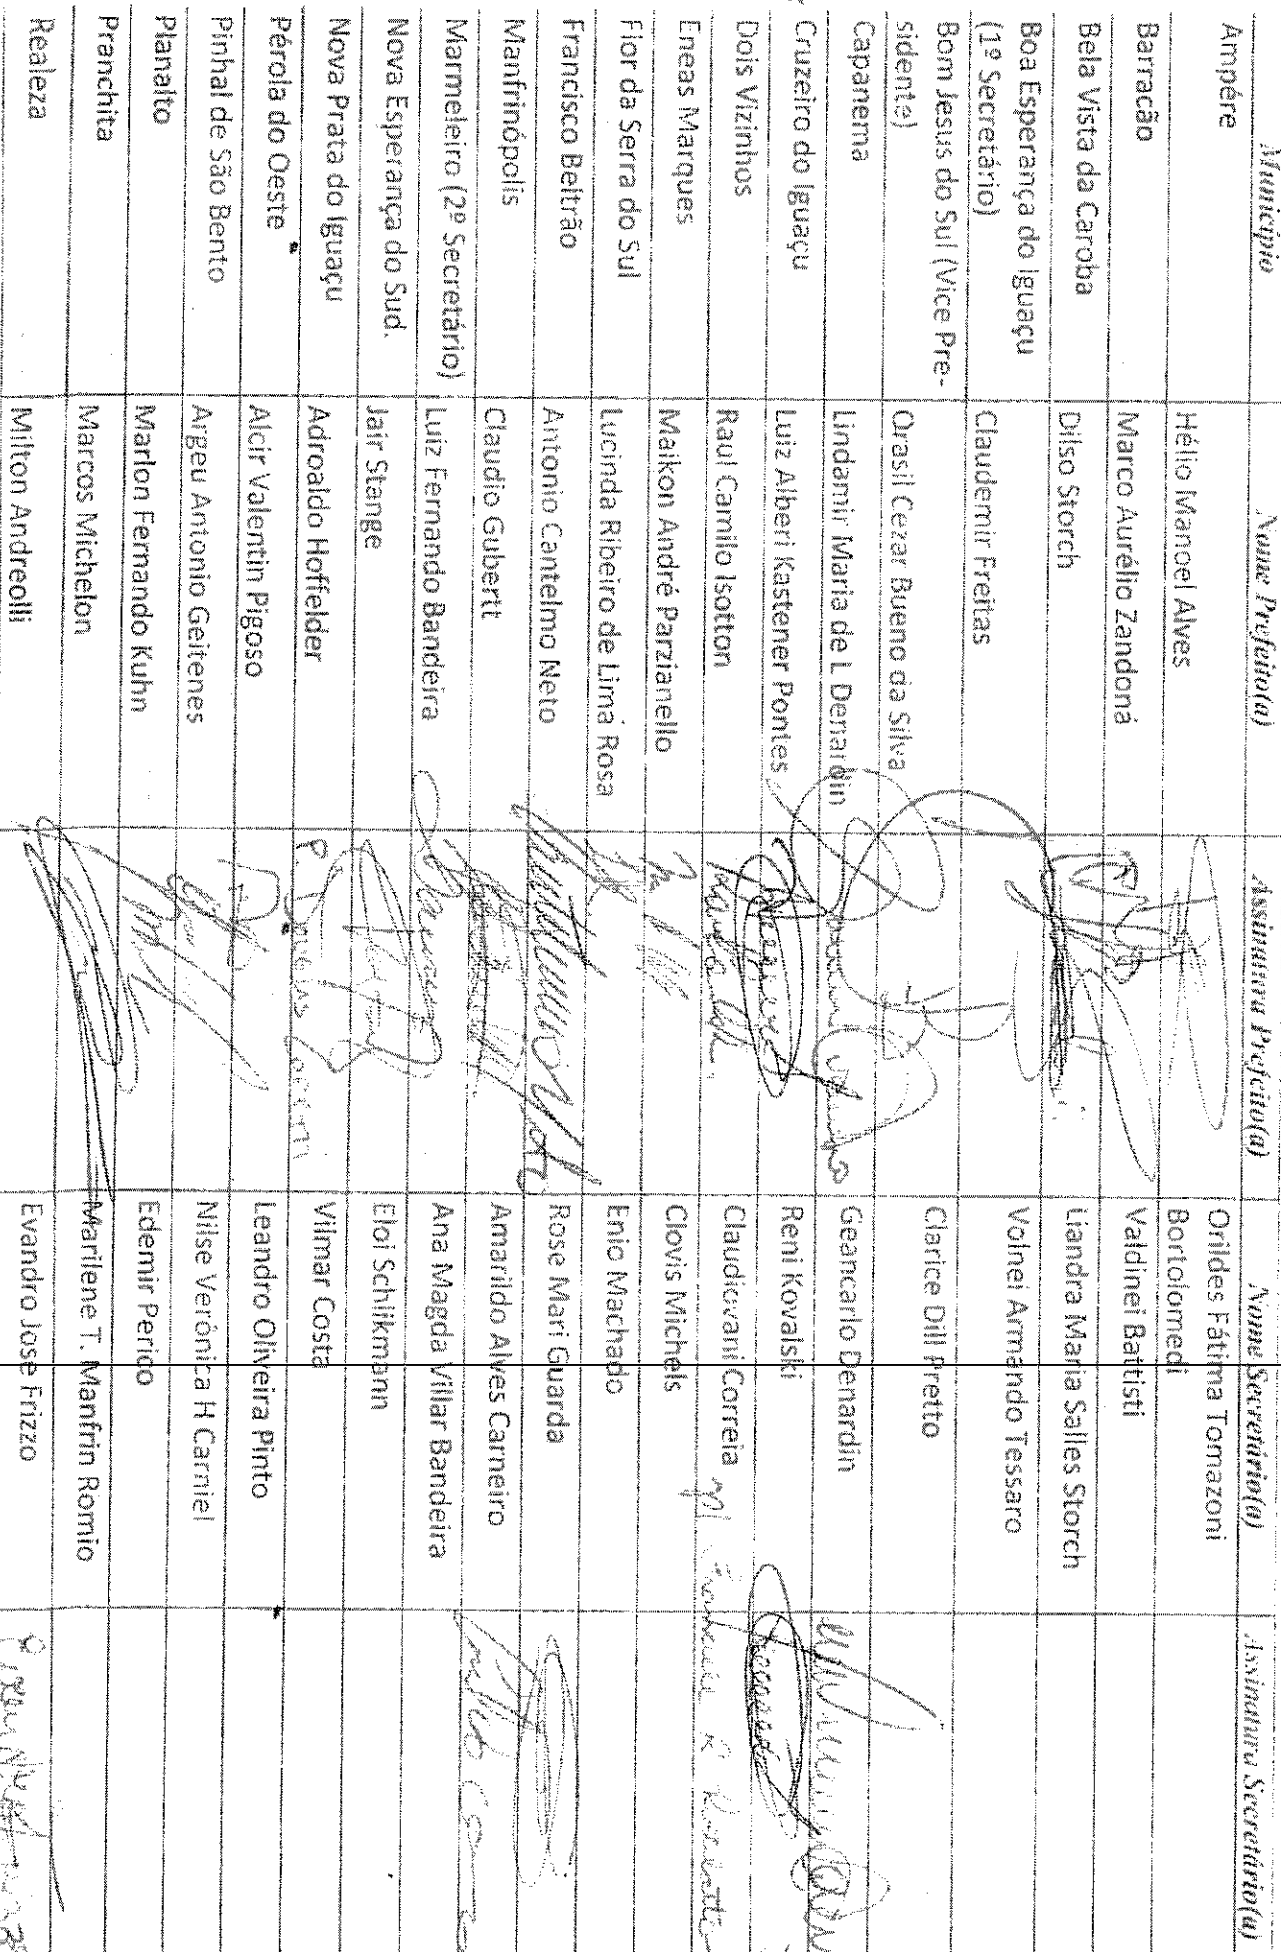 Município Nome Prefeito(a) Assinatura Prefeito(a) Nome Secretário(a) Assinatura Secretário(a)
Ampére Hélio Manoel Alves Orildes Fátima Tomazoni
Bortolomedi
Barracão Marco Aurélio Zandoná Valdinei Battisti
Bela Vista da Caroba Dilso Storch Liandra Maria Salles Storch
Boa Esperança do Iguaçu
(1º Secretário) Claudemir Freitas Volnei Armando Tessaro
Bom Jesus do Sul (Vice Pre-
sidente) Orasil Cezar Bueno da Silva Clarice Dill Pretto
Capanema Lindamir Maria de L Denardin Geancarlo Denardin
Cruzeiro do Iguaçu Luiz Alberi Kastener Pontes Reni Kovalski
Dois Vizinhos Raul Camilo Isotton Claudiovani Correia
Eneas Marques Maikon André Parzianello Clovis Michels
Flor da Serra do Sul Lucinda Ribeiro de Lima Rosa Enio Machado
Francisco Beltrão Antonio Cantelmo Neto Rose Mari Guarda
Manfrinópolis Claudio Gubertt Amarildo Alves Carneiro
Marmeleiro (2º Secretário) Luiz Fernando Bandeira Ana Magda Villar Bandeira
Nova Esperança do Sud. Jair Stange Eloi Schlikmann
Nova Prata do Iguaçu Adroaldo Hoffelder Vilmar Costa
Pérola do Oeste Alcir Valentin Pigoso Leandro Oliveira Pinto
Pinhal de São Bento Argeu Antonio Geitenes Nilse Verônica H Carniel
Planalto Marlon Fernando Kuhn Edemir Perico
Pranchita Marcos Michelon Marilene T. Manfrin Romio
Realeza Milton Andreolli Evandro Jose Frizzo